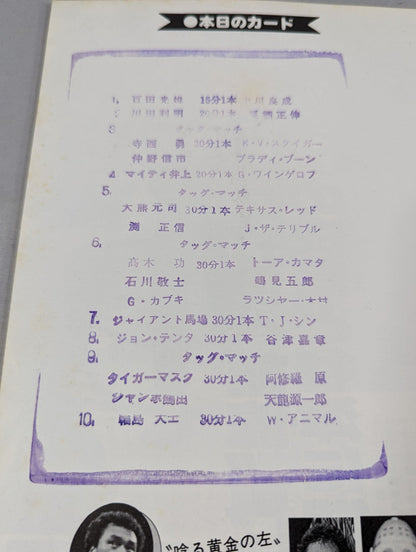 ●本日のカード
1. 百田光雄 15分1本 川良成
2. 川田利明 20分1本 正伸
3. タッグ・マッチ
寺西 勇 30分1本 K・V・スタイガー
仲野信市 ブラディ・ブーン
4. マイティ井上 20分1本 G・ワインゲロフ
5. タッグ・マッチ
大熊元司 30分1本 テキサス・レッド
渕 正信 J・ザ・テリブル
6. タッグ・マッチ
高木 功 30分1本 トーア・カマタ
石川敬士 鶴見五郎
G・カブキ ラッシャー・木村
7. ジャイアント馬場 30分1本 T・J・シン
8. ジョン・テンタ 30分1本 谷津嘉章
9. タッグ・マッチ
タイガーマスク 30分1本 阿修羅 原
ジャンボ鶴田 天龍源一郎
10. 輪島 大士 30分1本 W・アニマル
〝唸る黄金の左〟